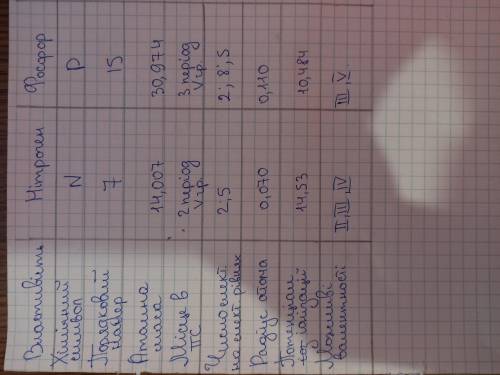 Властивість Нітроген Фосфор
Хімічний
символ N P
Порядковий
номер 7 15
Атомна
маса 14,007 30,974
Місце в 2 період 3 період
ПС V гр. V гр.
Число елект.
на елект рівнях 2; 5 2; 8; 5
Радіус атома 0,070 0,110
Потенціал
іонізації 14,53 10,484
Можливі
валентності II, III, IV III, V